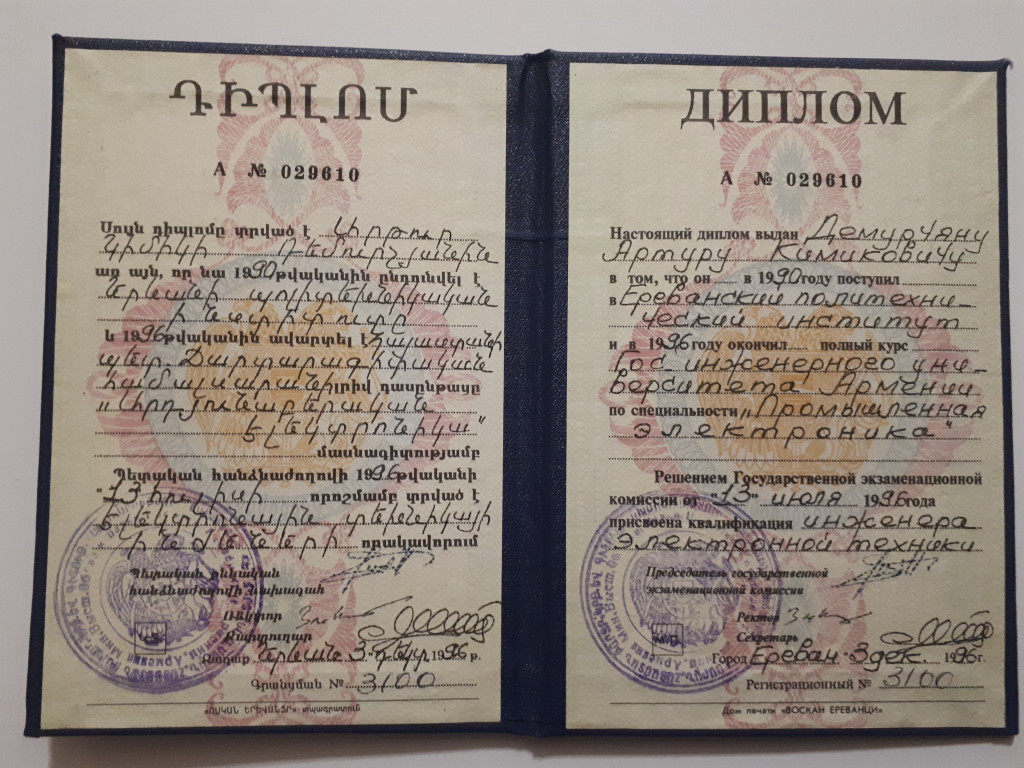 ԴԻՊԼՈՄ
А № 029610
Սույն դիպլոմը տրված է Արթուր
Կիմիկի Դեմուրչյանին
առ այն, որ նա 1990 թվականին ընդունվել է
Երևանի պոլիտեխնիկական
ինստիտուտը
և 1996 թվականին ավարտել է Հայաստանի
պետ. Ճարտարագիտական
համալսարանի լրիվ դասընթացը
„Արդյունաբերական
Էլեկտրոնիկա"
մասնագիտությամբ
Պետական հանձնաժողովի 1996 թվականի
"13 հուլիսի որոշմամբ տրված է
Էլեկտրոնային տեխնիկայի
ինժեների որակավորում
Պետական քննական
հանձնաժողովի նախագահ
Ռեկտոր
Քարտուղար
Քաղաք Երևան 3 դեկտ. 1996 թ.
Գրանցման № 3100
«ՈՍԿԱՆ ԵՐԵՎԱՆՑԻ» տպագրատուն
ДИПЛОМ
А № 029610
Настоящий диплом выдан Демурчяну
Артуру Кимиковичу
в том, что он в 1990 году поступил
в Ереванский политехни-
ческий институт
и в 1996 году окончил полный курс
Гос. инженерного уни-
верситета Армении
по специальности „Промышленная
электроника"
Решением Государственной экзаменационной
комиссии от "13" июля 1996 года
присвоена квалификация инженера
электронной техники
Председатель государственной
экзаменационной комиссии
Ректор
Секретарь
Город Ереван 3 дек. 1996 г.
Регистрационный № 3100
Дом печати «ВОСКАН ЕРЕВАНЦИ».